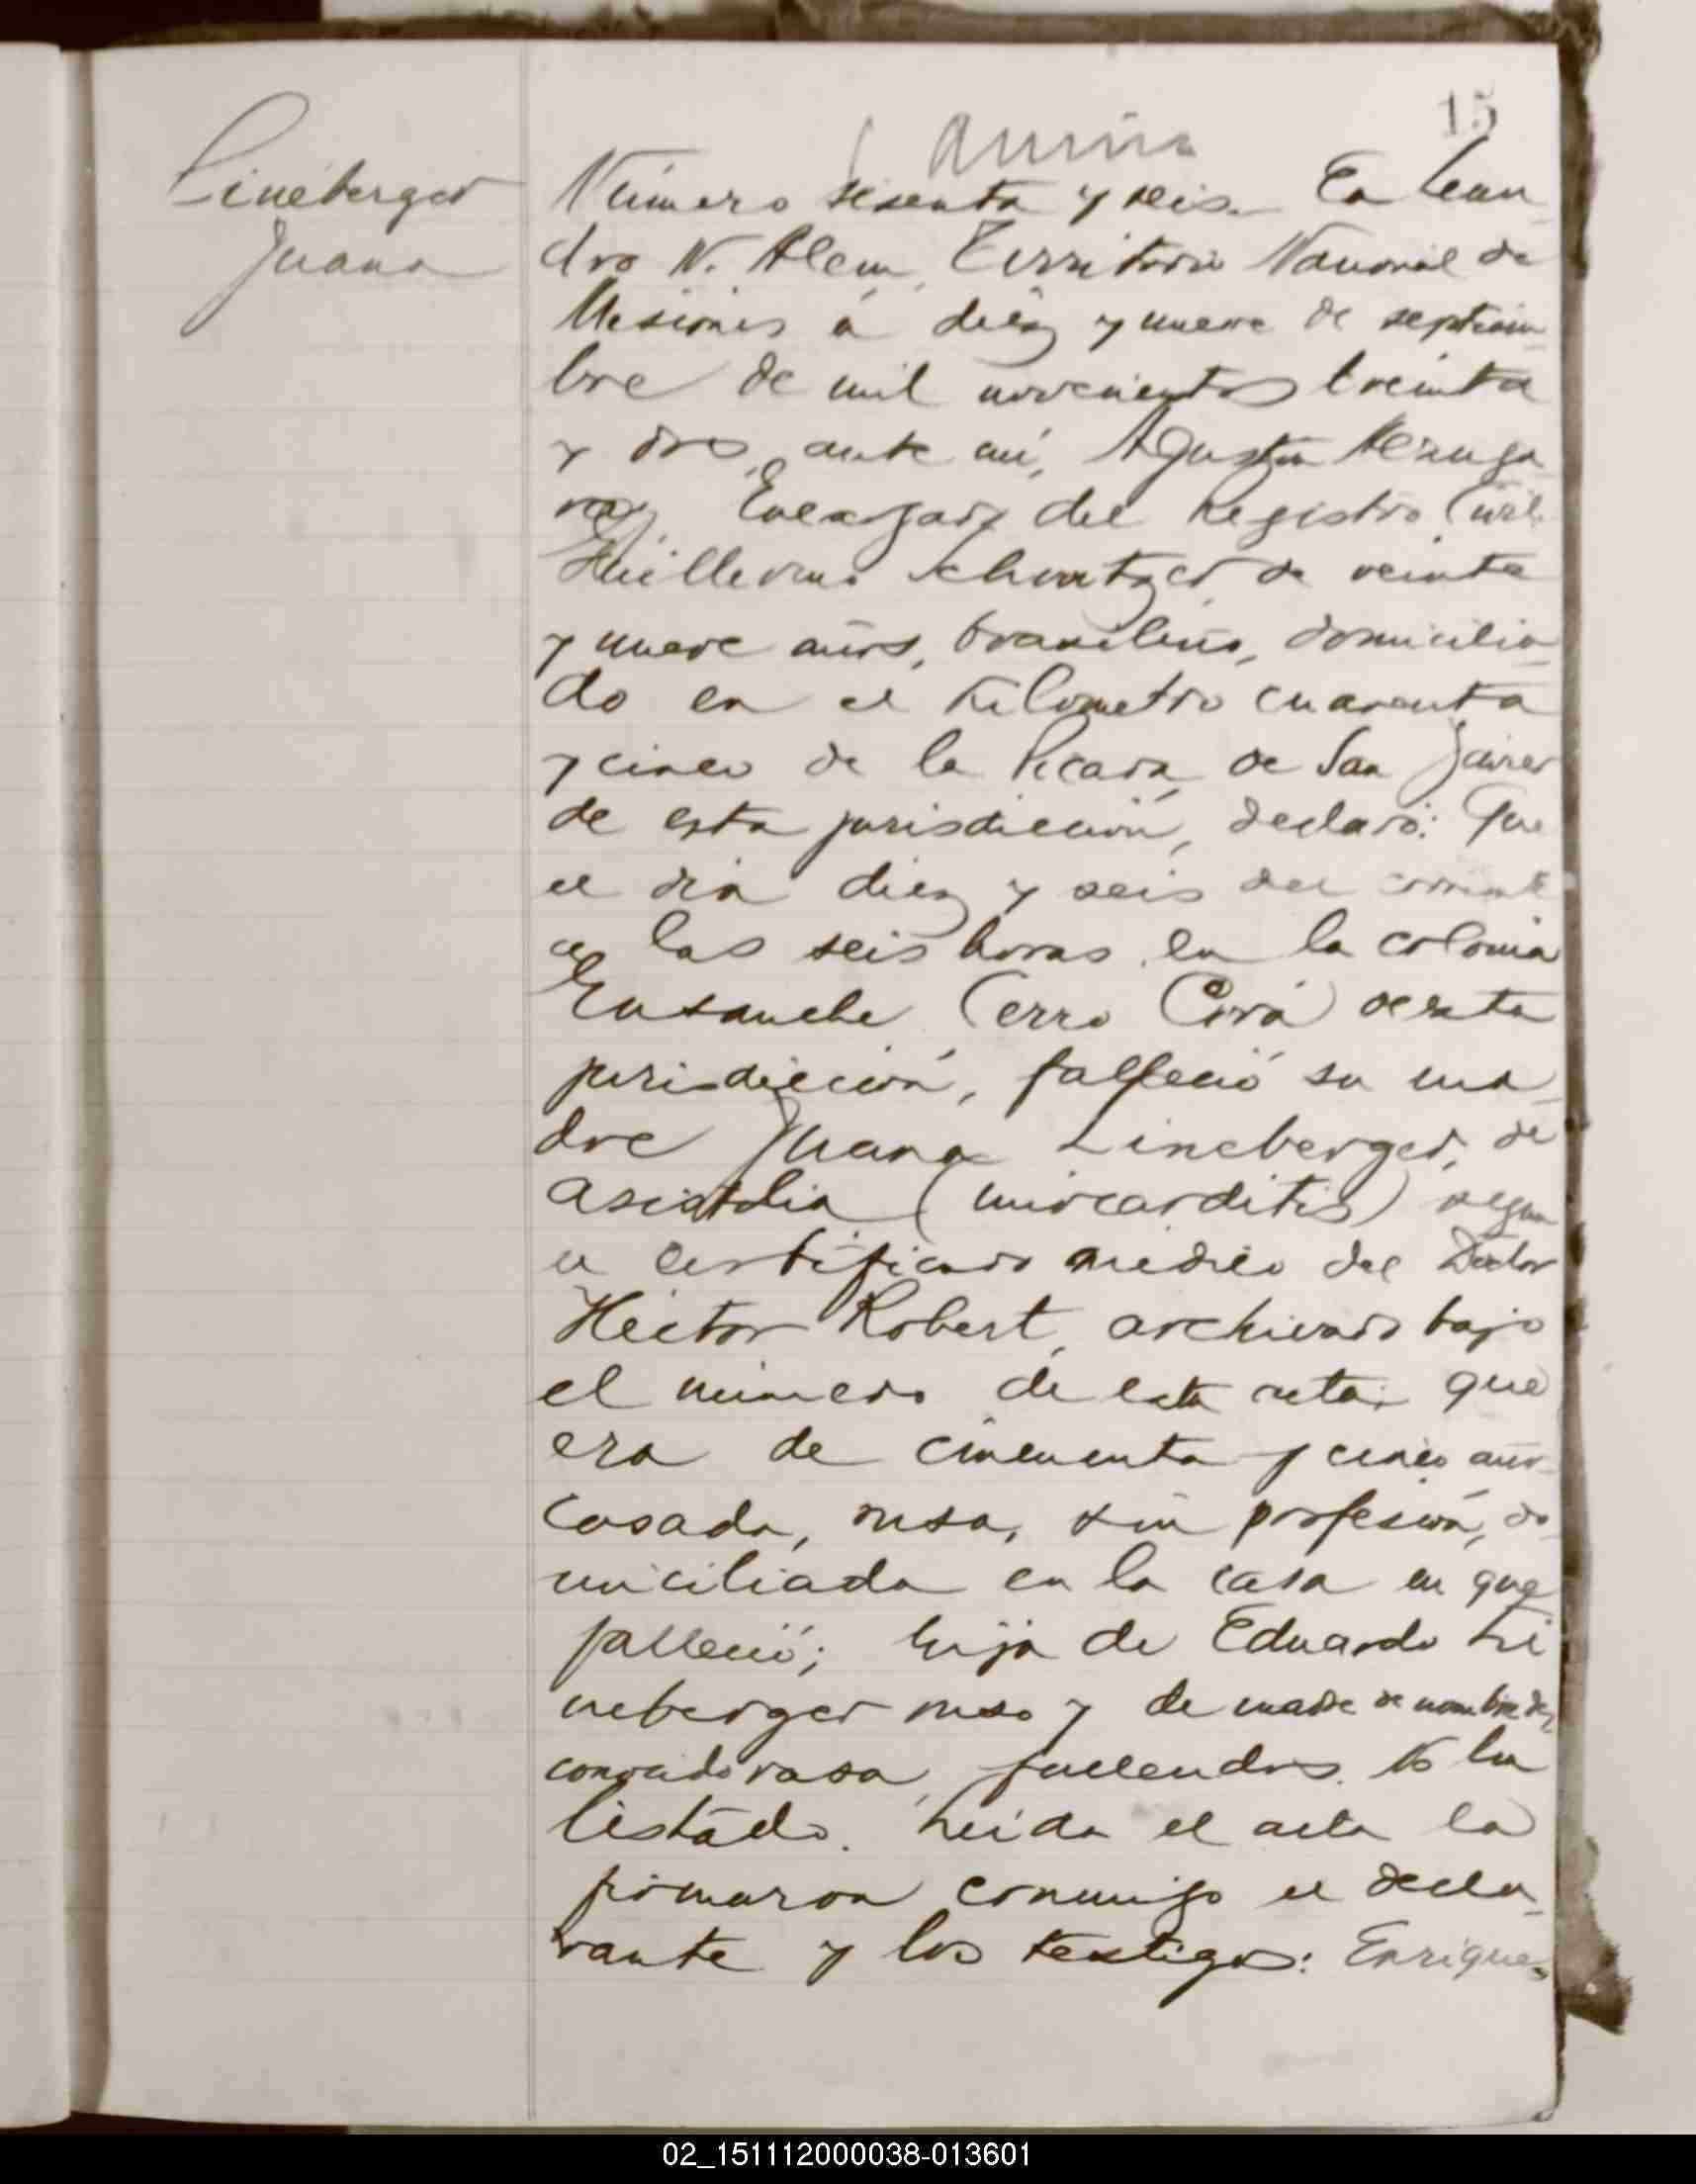 15
Lineberger
Juana
Número sesenta y seis. En Lean
dro N. Alem, Territorio Nacional de
Misiones á diez y nueve de septiem
bre de mil novecientos treinta
y dos, ante mí, Agustín
Encargado del Registro Civil
Guillermo de veinte
y nueve años, brasileño, domicilia
do en el kilometro cuarenta
y cinco de la Picada de San Javier
de esta jurisdicción, declaró: Que
el día diez y seis del corriente
a las seis horas en la colonia
Ensanche Cerro Corá de esta
jurisdicción, falleció su ma
dre Juana Lineberger, de
asistolia (miocarditis) segun
el certificado médico del Doctor
Héctor Robert, archivado bajo
el número de esta acta; que
era de cincuenta y cinco años
casada, rusa, sin profesión, do
miciliada en la casa en que
falleció; hija de Eduardo Li
neberger ruso y de madre de nombre des
conocido rusa, fallecidos. No ha
testado. Leida el acta la
firmaron conmigo el decla
rante y los testigos: Enrique
02_151112000038-013601